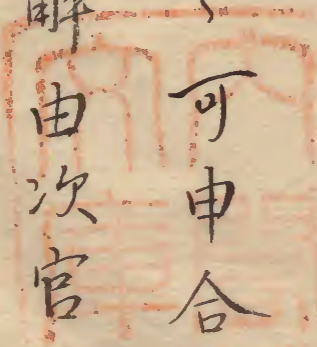 可申合
解由次官